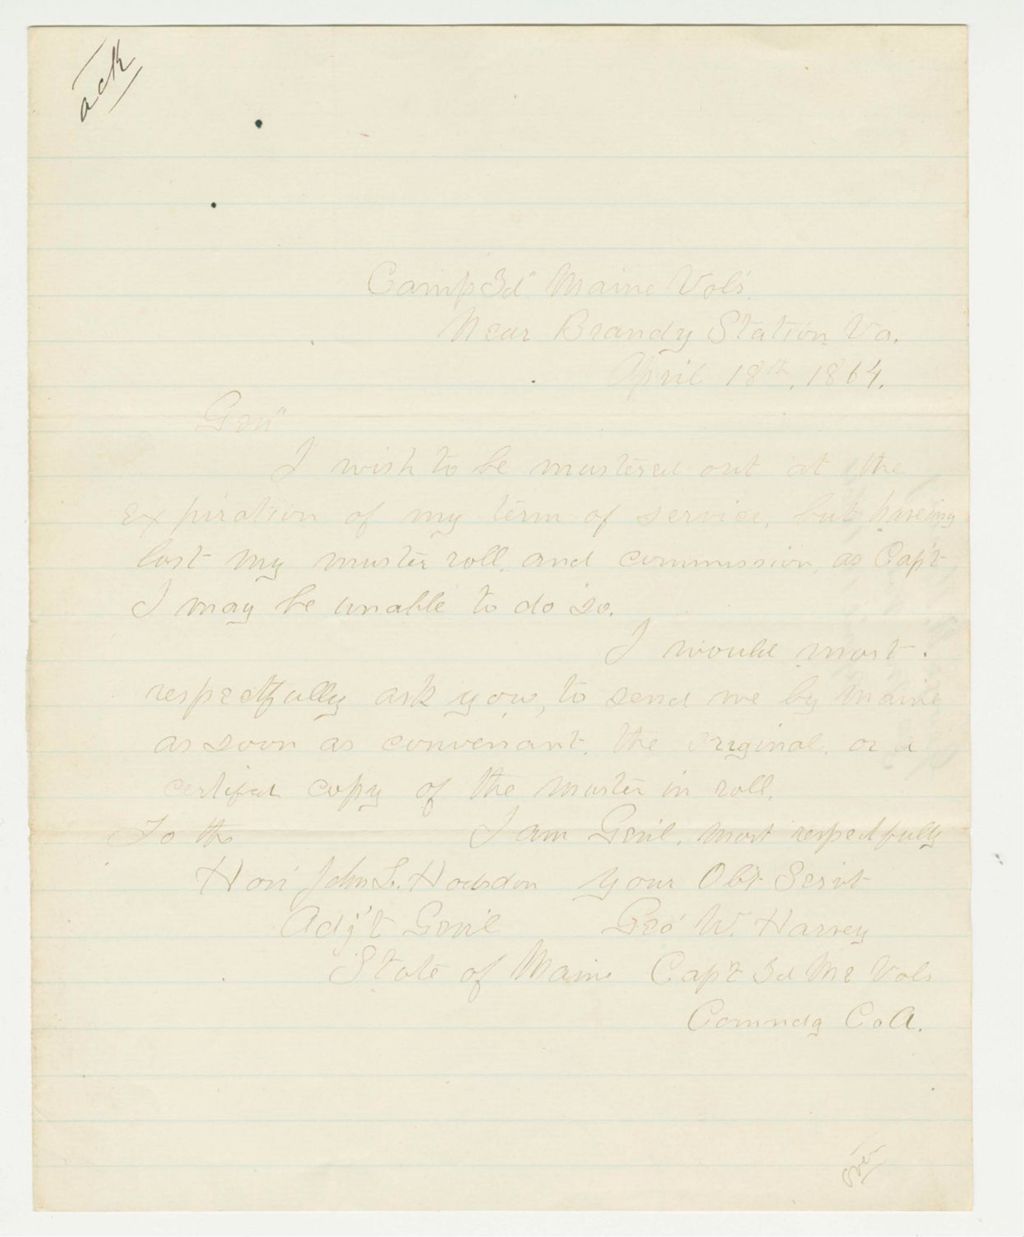 ack
Camp 3d" Maine Vols'.
Near Brandy Station Va.
April 18th, 1864.
Gen"
I wish to be mustered out at the
Expiration of my term of service, but haveing
lost my muster roll, and commission, as Cap't
I may be unable to do so.
I would most.
respectfully ask you, to send me by maile
as soon as convenant, the original, or a
copy of the muster in roll.
To the I am Genl, most respectfully
Hon' John L. Hodsdon your Obt Servt
Adj't Genl Geo' W. Harvey
State of Maine Cap't 3d Me Vols
Comndg Co A.